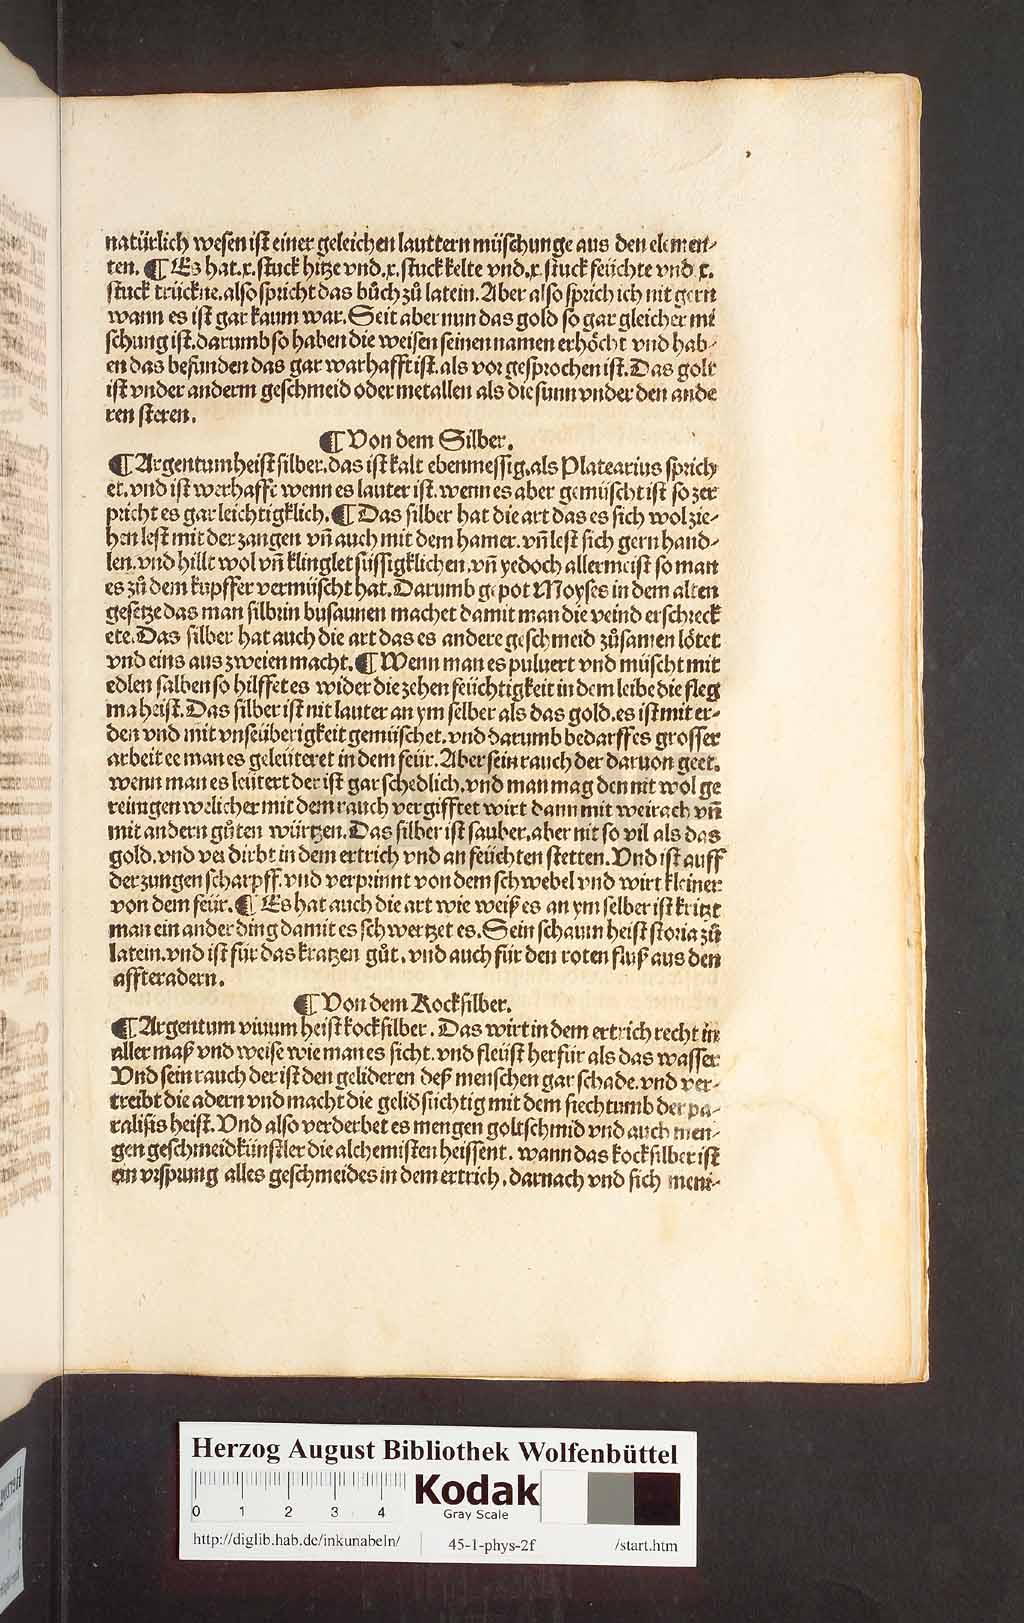 natürlich wesen ist einer geleichen lauttern müschunge aus den elemen-
ten. ¶ Es hat .x. stuck hitze vnd .x. stuck kelte vnd .x. stuck feüchte vnd x.
stuck trückne. also spricht das bůch zů latein. Aber also sprich ich nit gern
wann es ist gar kaum war. Seit aber nun das gold so gar gleicher mi
schung ist. darumb so haben die weisen seinen namen erhöcht vnd hab-
en das befunden das gar warhafft ist. als vor gesprochen ist. Das golt
ist vnder anderm geschmeid oder metallen als die sunn vnder den ande
ren steren.
¶ Von dem Silber.
¶ Argentum heist silber. das ist kalt ebenmessig. als Platearius sprich
et. vnd ist werhafft wenn es lauter ist. wenn es aber gemüscht ist so zer
pricht es gar leichtigklich. ¶ Das silber hat die art das es sich wol zie-
hen lest mit der zangen vñ auch mit dem hamer. vñ lest sich gern hand-
len. vnd hillt wol vñ klinglet süssigklichen. vñ yedoch allermeist so man
es zů dem kupffer vermüscht hat. Darumb gepot Moyses in dem alten
gesetze das man silbrin busaunen machet damit man die veind erschreck
ete. Das silber hat auch die art das es andere geschmeid zůsamen lötet
vnd eins aus zweien macht. ¶ Wenn man es puluert vnd müscht mit
edlen salben so hilffet es wider die zehen feüchtigkeit in dem leibe die fleg
ma heist. Das silber ist nit lauter an ym selber als das gold. es ist mit er-
den vnd mit vnseüberigkeit gemüschet. vnd darumb bedarff es grosser
arbeit ee man es geleüteret in dem feür. Aber sein rauch der daruon geet.
wenn man es leütert der ist gar schedlich. vnd man mag den nit wol ge
reinigen welicher mit dem rauch vergifftet wirt dann mit weirach vñ
mit andern gůten würtzen. Das silber ist sauber. aber nit so vil als das
gold. vnd verdirbt in dem ertrich vnd an feüchten stetten. Vnd ist auff
der zungen scharpff. vnd verprinnt von dem schwebel vnd wirt kleiner
von dem feür. ¶ Es hat auch die art wie weiß es an ym selber ist kritzt
man ein ander ding damit es schwertzet es. Sein schaum heist storia zů
latein. vnd ist für das kratzen gůt. vnd auch für den roten fluß aus den
affteradern.
¶ Von dem Kocksilber.
¶ Argentum viuum heist kocksilber. Das wirt in dem ertrich recht in
aller maß vnd weise wie man es sicht. vnd fleüst herfür als das wasser
Vnd sein rauch der ist den gelideren deß menschen gar schade. vnd ver-
treibt die adern vnd macht die gelidsüchtig mit dem siechtumb der pa-
ralisis heist. Vnd also verderbet es mengen goltschmid vnd auch men-
gen geschmeidkünstler die alchemisten heissent. wann das kocksilber ist
ein vrsprung alles geschmeides in dem ertrich. darnach vnd sich meni-
Herzog August Bibliothek Wolfenbüttel
0 1 2 3 4
Kodak
Gray Scale
http://diglib.hab.de/inkunabeln/ 45-1-phys-2f /start.htm